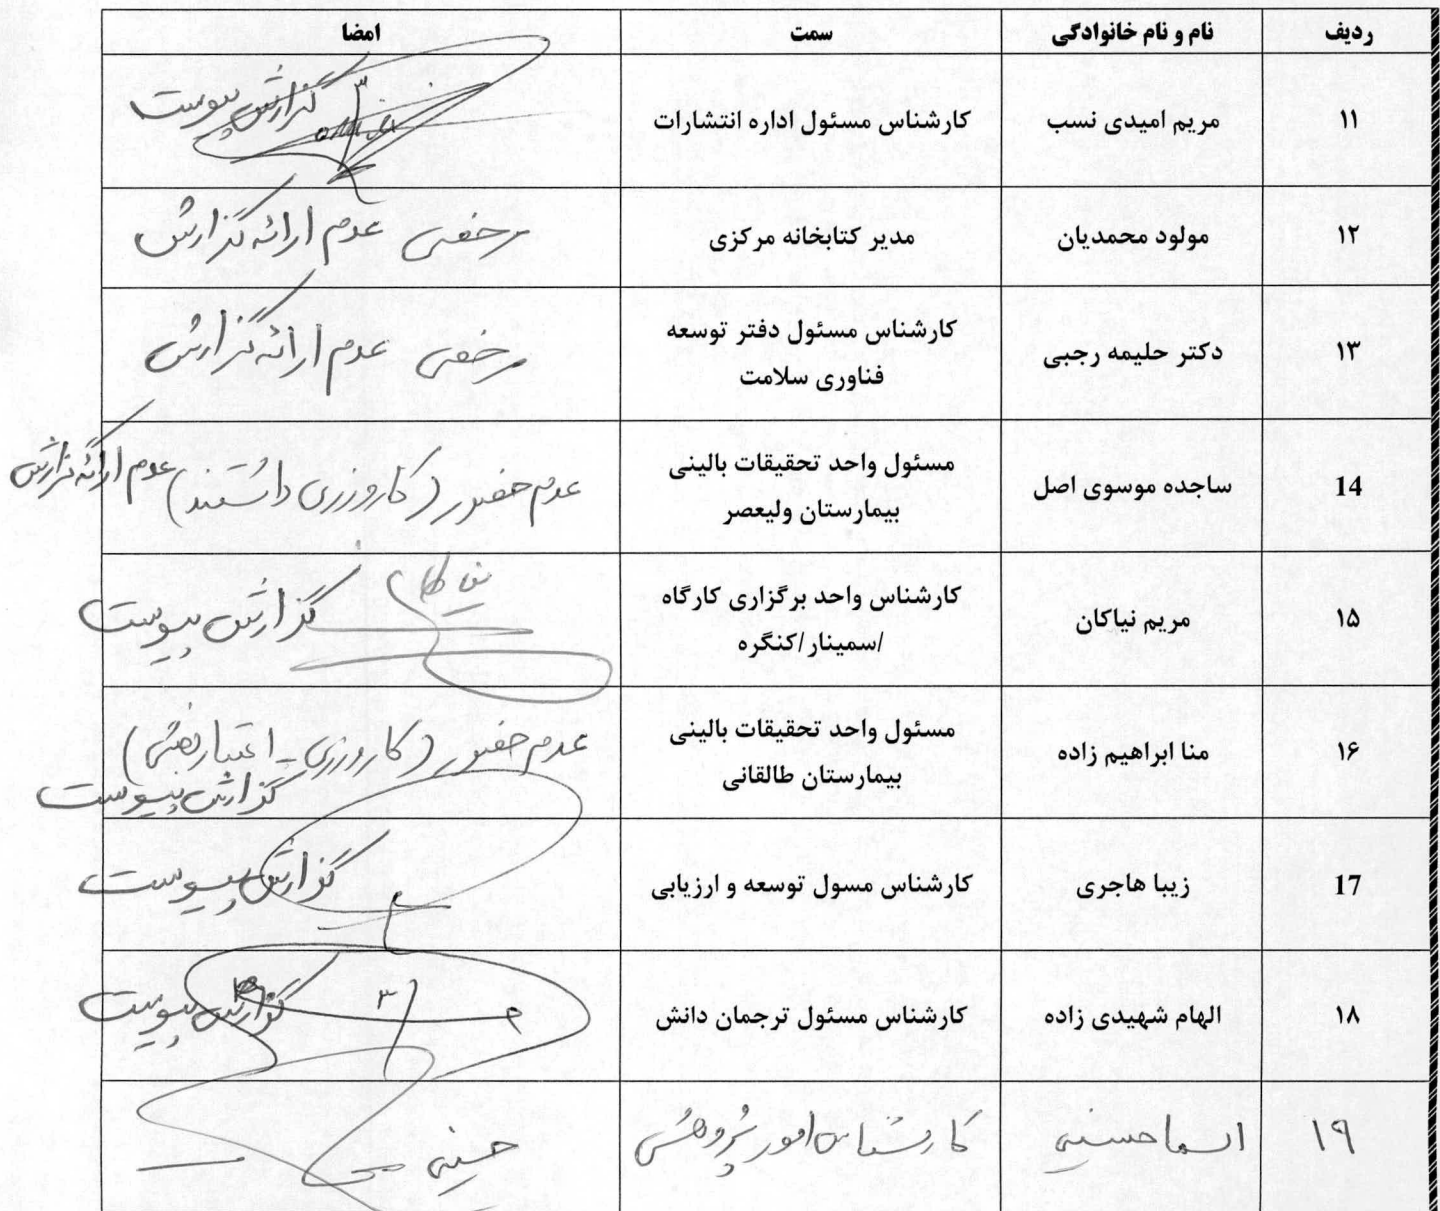 ردیف نام و نام خانوادگی سمت امضا
۱۱ مریم امیدی نسب کارشناس مسئول اداره انتشارات گزارش پیوست
۱۲ مولود محمدیان مدیر کتابخانه مرکزی مرخصی عدم ارائه گزارش
۱۳ دکتر حلیمه رجبی کارشناس مسئول دفتر توسعه
فناوری سلامت مرخصی عدم ارائه گزارش
14 ساجده موسوی اصل مسئول واحد تحقیقات بالینی
بیمارستان ولیعصر عدم حضور (کارورزی داشتند) عدم ارائه گزارش
۱۵ مریم نیاکان کارشناس واحد برگزاری کارگاه
/سمینار/کنگره نیاکان گزارش پیوست
۱۶ منا ابراهیم زاده مسئول واحد تحقیقات بالینی
بیمارستان طالقانی عدم حضور (کارورزی - اعتباربخشی)
گزارش پیوست
17 زیبا هاجری کارشناس مسول توسعه و ارزیابی گزارش پیوست
۱۸ الهام شهیدی زاده کارشناس مسئول ترجمان دانش گزارش پیوست
۱۹ اسما حسینی کارشناس امور پژوهشی حسینی